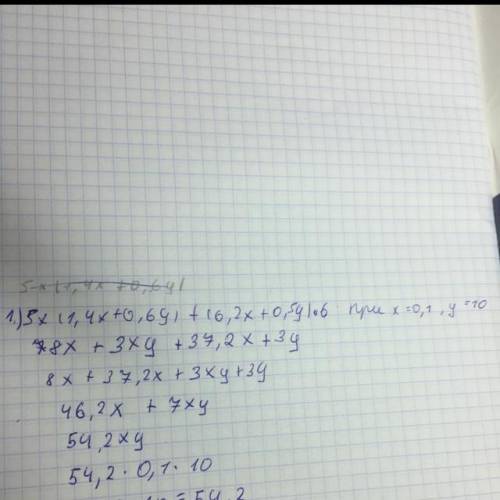 5x(1,4x+0,6y)
1.) 5x(1,4x+0,6y)+(6,2x+0,5y)•6 при x=0,1, y=10
8x + 3xy + 37,2x+3y
8x+37,2x+3xy+3y
46,2x + 7xy
54,2xy
54,2·0,1·10
= 54,2